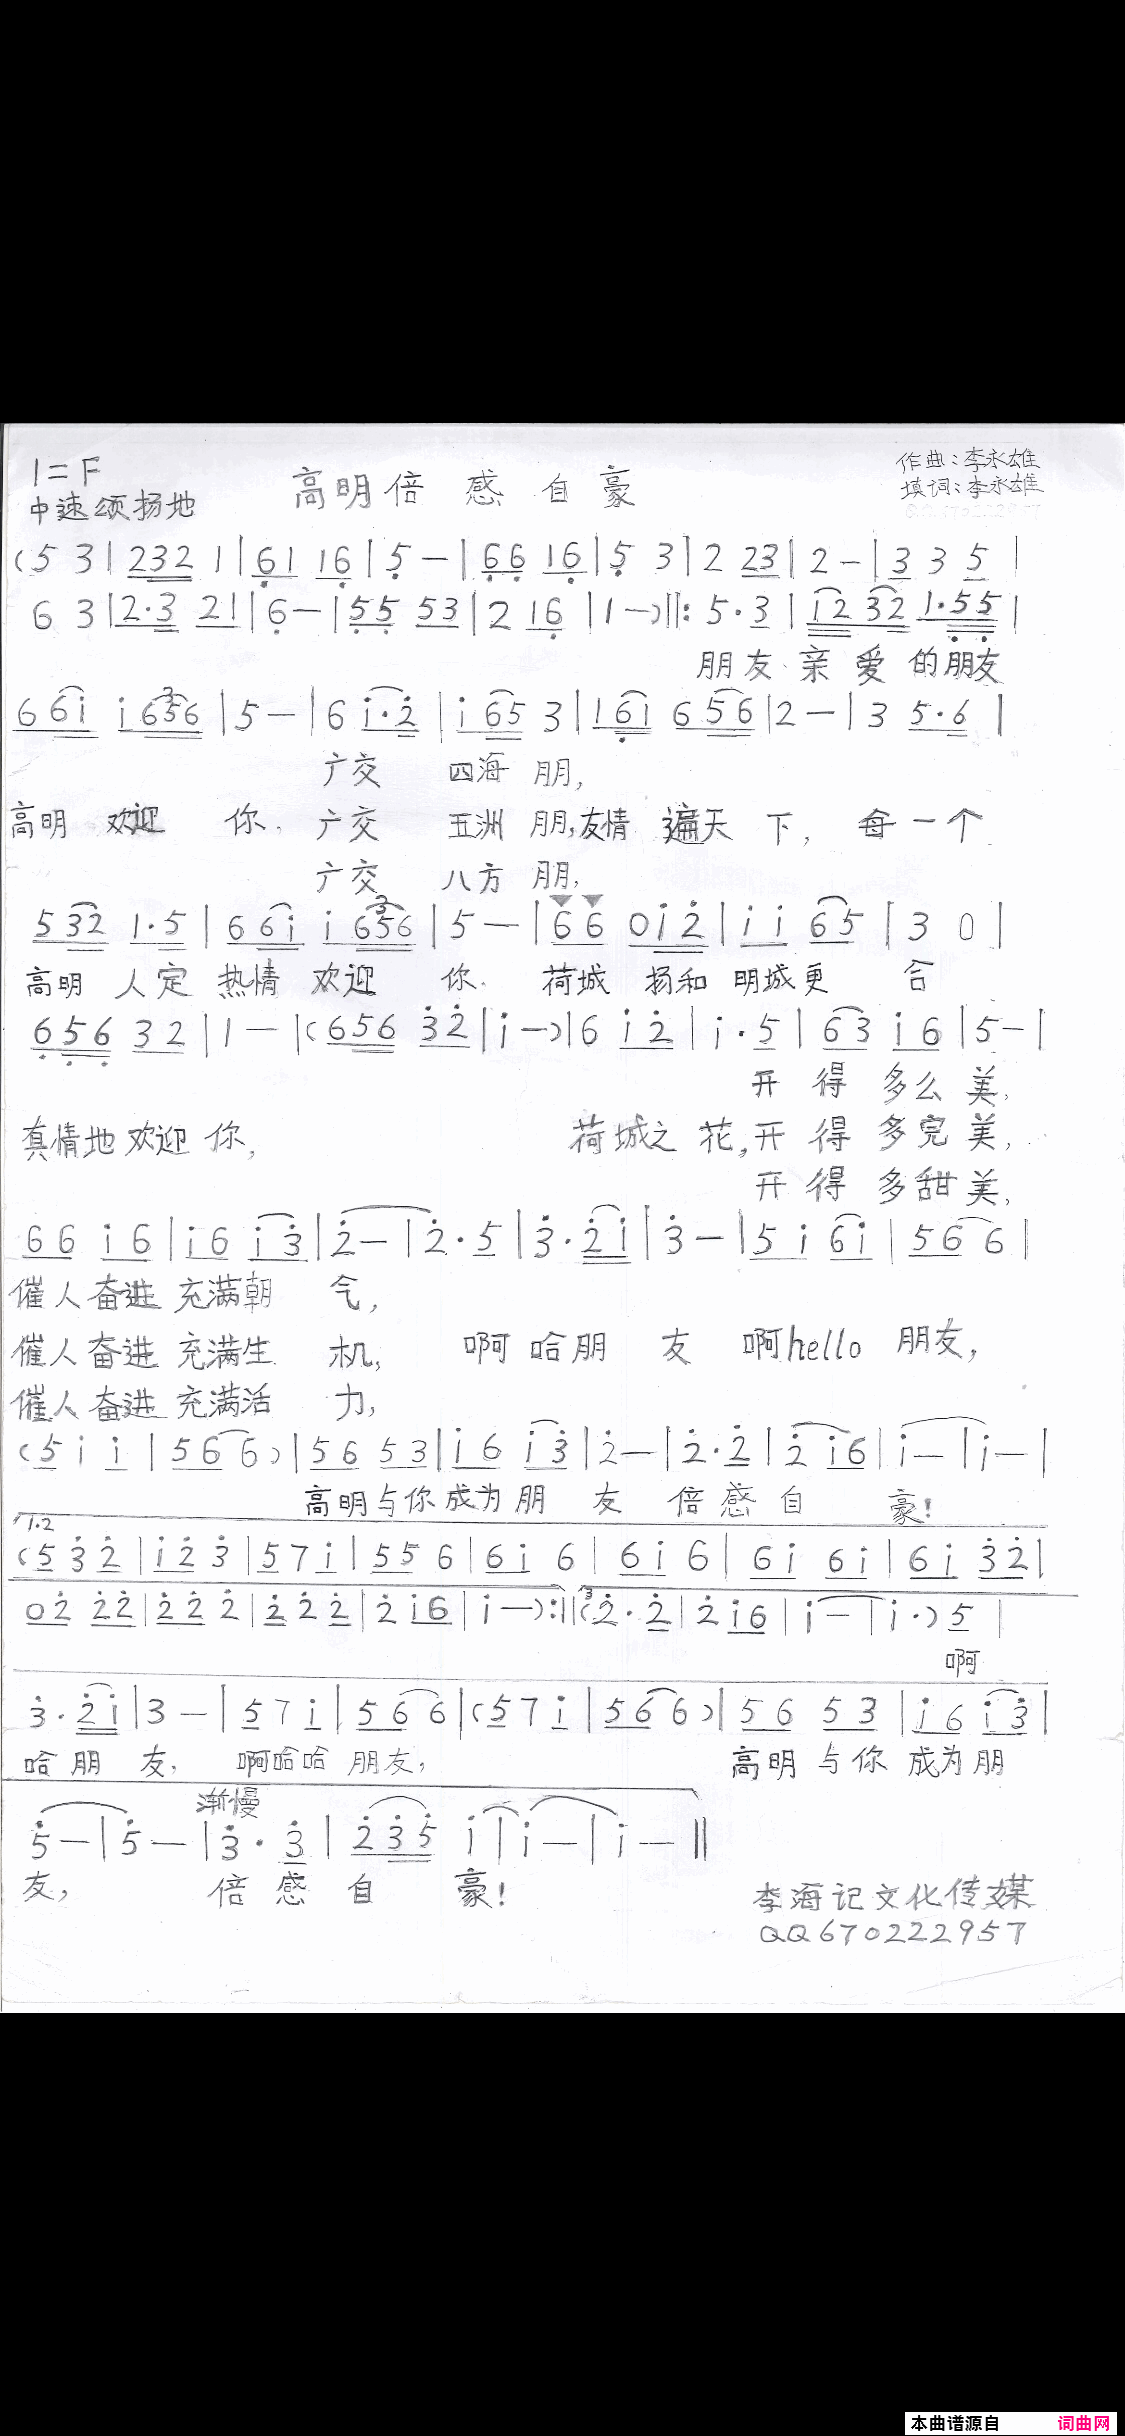 1=F
中速颂扬地
高明倍感自豪
作曲:李永雄
填词:李永雄
(5 3|232 1|61 16|5 —|66 16|5 3|2 23|2 —|3 3 5|
6 3|2·3 21|6 —|55 53|2 16|1 —)‖: 5·3|i2 32 1·55|
朋友 亲 爱 的朋友
6 6i i 656|5 —|6 i·2|i 65 3|161 6 56|2 —|3 5·6|
广交 四海 朋,
高明 欢迎 你. 广交 五洲 朋,友情 遍天 下, 每一个
广交 八方 朋,
5 32 1·5|6 6i i 656|5 —|66 0i2|i i 65|3 0|
高明 人定 热情 欢迎 你. 荷城 扬和 明城更 合
656 32|1 —|(656 32|i —)|6 i2|i·5|63 i6|5 —|
开 得 多么 美,
真情地欢迎 你, 荷城之 花,开 得 多完 美,
开 得 多甜 美,
66 i6|i6 i3|2 —|2·5|3·2i|3 —|5 i 6i|56 6|
催人奋进 充满朝 气,
催人奋进 充满生 机, 啊 哈朋 友 啊hello 朋友,
催人奋进 充满活 力,
(5 i i|56 6)|56 53|i6 i3|2 —|2·2|2 i6|i —|i —|
高明与你成为朋 友 倍感自 豪!
1.2
(5 3 2|i 2 3|57 i|55 6|6i 6|6i 6|6i 6i|6i 32|
02 22|22 2|2 2 2|2 i6|i —):‖(3 2·2|2 i6|i —|i·)5|
啊
3·2i|3 —|5 7 i|56 6|(5 7 i|56 6)|56 53|i6 i3|
哈朋 友, 啊哈哈 朋友, 高明 与你 成为朋
渐慢
5 —|5 —|3·3|2 3 5 i|i —|i —‖
友, 倍 感 自 豪!
李海记文化传媒
QQ670222957
本曲谱源自 词曲网